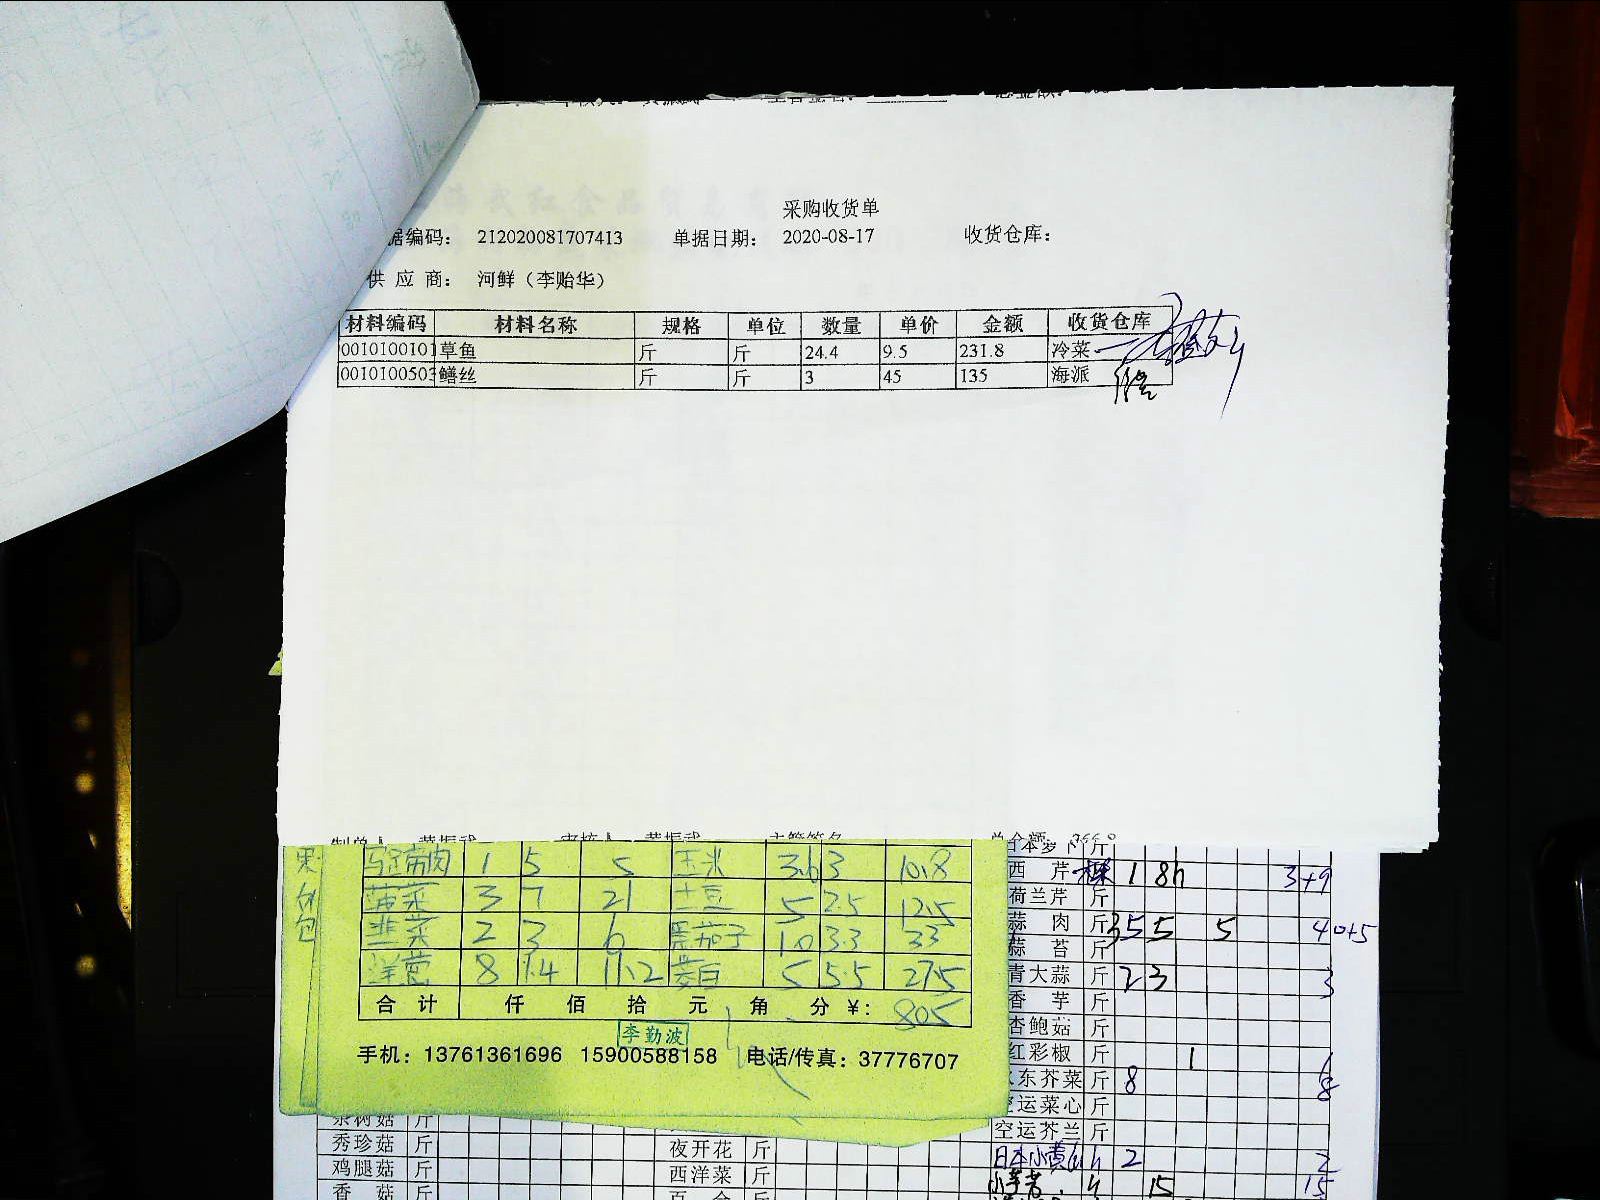 采购收货单
据编码： 212020081707413 单据日期： 2020-08-17 收货仓库：
供 应 商： 河鲜（李贻华）
材料编码 材料名称 规格 单位 数量 单价 金额 收货仓库
001010010 草鱼 斤 斤 24.4 9.5 231.8 冷菜
001010050 鳝丝 斤 斤 3 45 135 海派
1 5 5 玉米 3.6 3 10.8
菠菜 3 7 21 土豆 5 2.5 12.5
韭菜 2 3 6 黑茄子 10 3.3 33
洋葱 8 1.4 11.2 茭白 5 5.5 27.5
合 计 仟 佰 拾 元 角 分 ¥: 805
李勤波
手机：13761361696 15900588158 电话/传真：37776707
西 芹 1 8 3+9
荷兰芹 斤
蒜 肉 斤 5 5 40+5
蒜 苔 斤
青大蒜 斤 2 3 3
香 芋 斤
杏鲍菇 斤
红彩椒 斤 1
东芥菜 斤 8 8
空运菜心 斤
空运芥兰 斤
2 2
小芋艿 15 15
茶树菇 斤
秀珍菇 斤 夜开花 斤
鸡腿菇 斤 西洋菜 斤
香 菇 斤 百 合 斤